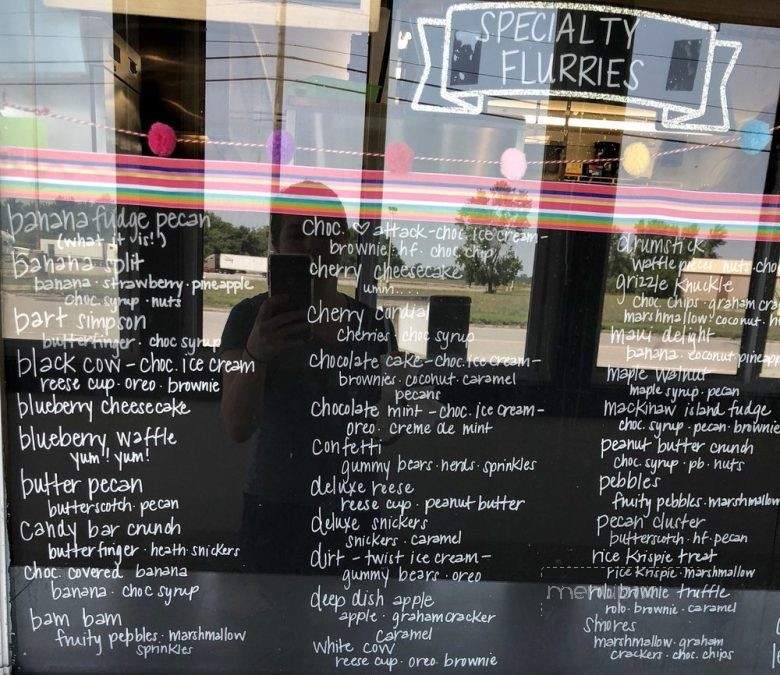 SPECIALTY
FLURRIES
banana fudge pecan
(what it is!)
banana split
banana · strawberry · pineapple
choc syrup · nuts
bart simpson
butterfinger · choc syrup
black cow - choc. ice cream
reese cup · oreo · brownie
blueberry cheesecake
blueberry waffle
yum! yum!
butter pecan
butterscotch · pecan
candy bar crunch
butterfinger · heath · snickers
choc. covered banana
banana · choc syrup
bam bam
fruity pebbles · marshmallow
sprinkles
choc. ♡ attack - choc. ice cream -
brownie · hf · choc chip
cherry cheesecake
umm....
cherry cordial
cherries · choc syrup
chocolate cake - choc. ice cream -
brownies · coconut · caramel
pecans
chocolate mint - choc. ice cream -
oreo · creme de mint
confetti
gummy bears · nerds · sprinkles
deluxe reese
reese cup · peanut butter
deluxe snickers
snickers · caramel
dirt - twist ice cream -
gummy bears · oreo
deep dish apple
apple · graham cracker
caramel
white cow
reese cup · oreo · brownie
drumstick
waffle pieces · nuts · cho
grizzle knuckle
choc chips · graham cra
marshmallow · coconut · h
maui delight
banana · coconut · pineapp
maple walnut
maple syrup · pecan
mackinaw island fudge
choc. syrup · pecan · brownie
peanut butter crunch
choc. syrup · pb · nuts
pebbles
fruity pebbles · marshmallow
pecan cluster
butterscotch · hf · pecan
rice krispie treat
rice krispie · marshmallow
rolo brownie truffle
rolo · brownie · caramel
s'mores
marshmallow · graham
crackers · choc. chips